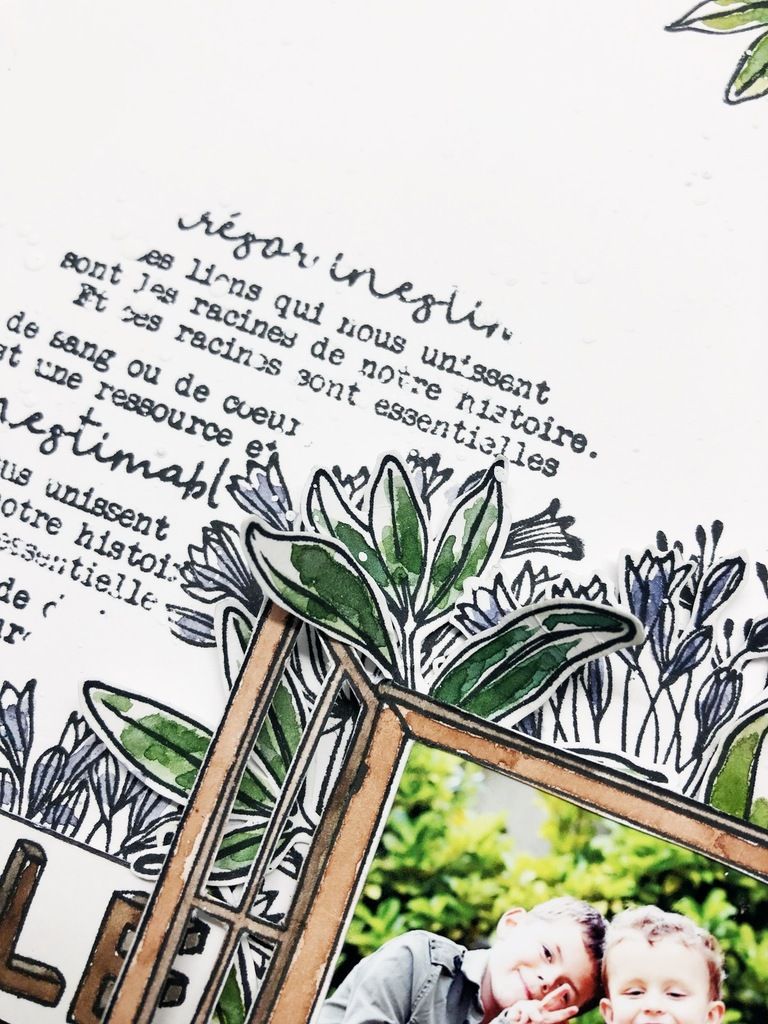 trésor inestim
es liens qui nous unissent
sont les racines de notre histoire.
Et ces racines sont essentielles
de sang ou de coeur
st une ressource et
nestimabl
us unissent
otre histoi
essentielle
de
ur
LE